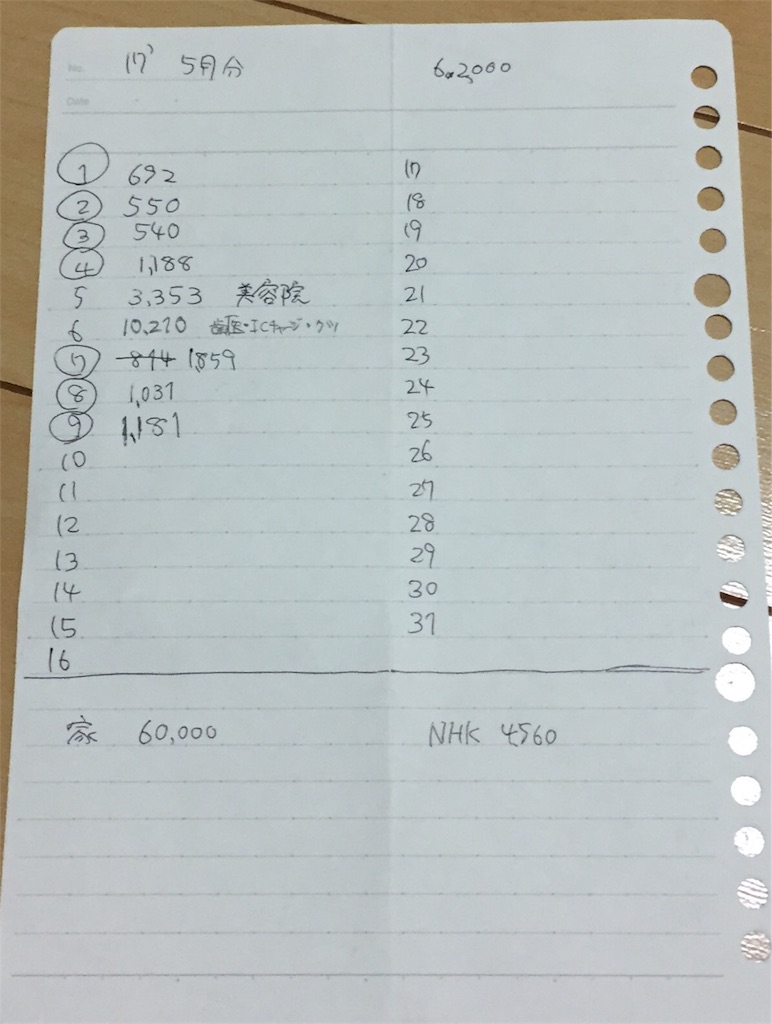 No. 17' 5月分 6.2,000
Date
1 692
2 550
3 540
4 1,188
5 3,353 美容院
6 10,270 歯医・ICチャージ・クツ
7 844 1,859
8 1,031
9 1,181
10
11
12
13
14
15
16
17
18
19
20
21
22
23
24
25
26
27
28
29
30
31
家 60,000
NHK 4,560